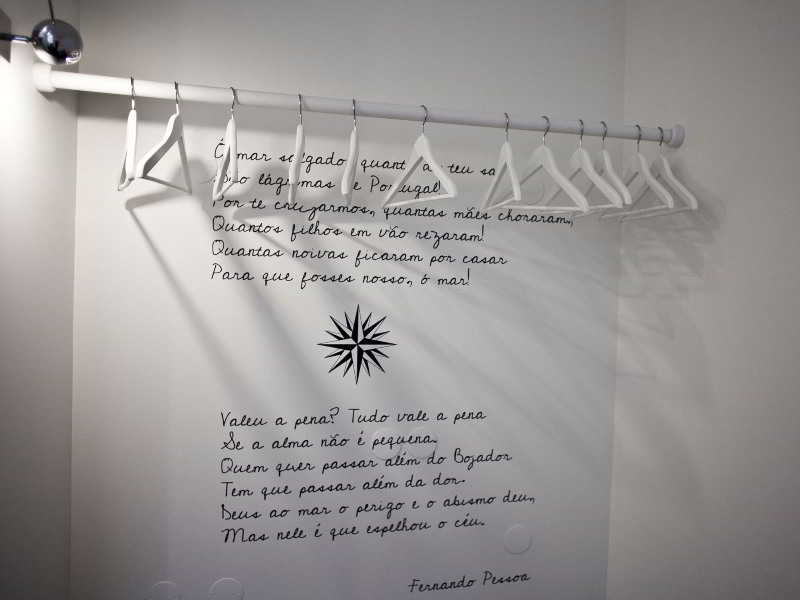 Ó mar salgado, quanto do teu sa
São lágrimas de Portugal!
Por te cruzarmos, quantas mães choraram,
Quantos filhos em vão rezaram!
Quantas noivas ficaram por casar
Para que fosses nosso, ó mar!
Valeu a pena? Tudo vale a pena
Se a alma não é pequena.
Quem quer passar além do Bojador
Tem que passar além da dor.
Deus ao mar o perigo e o abismo deu,
Mas nele é que espelhou o céu.
Fernando Pessoa